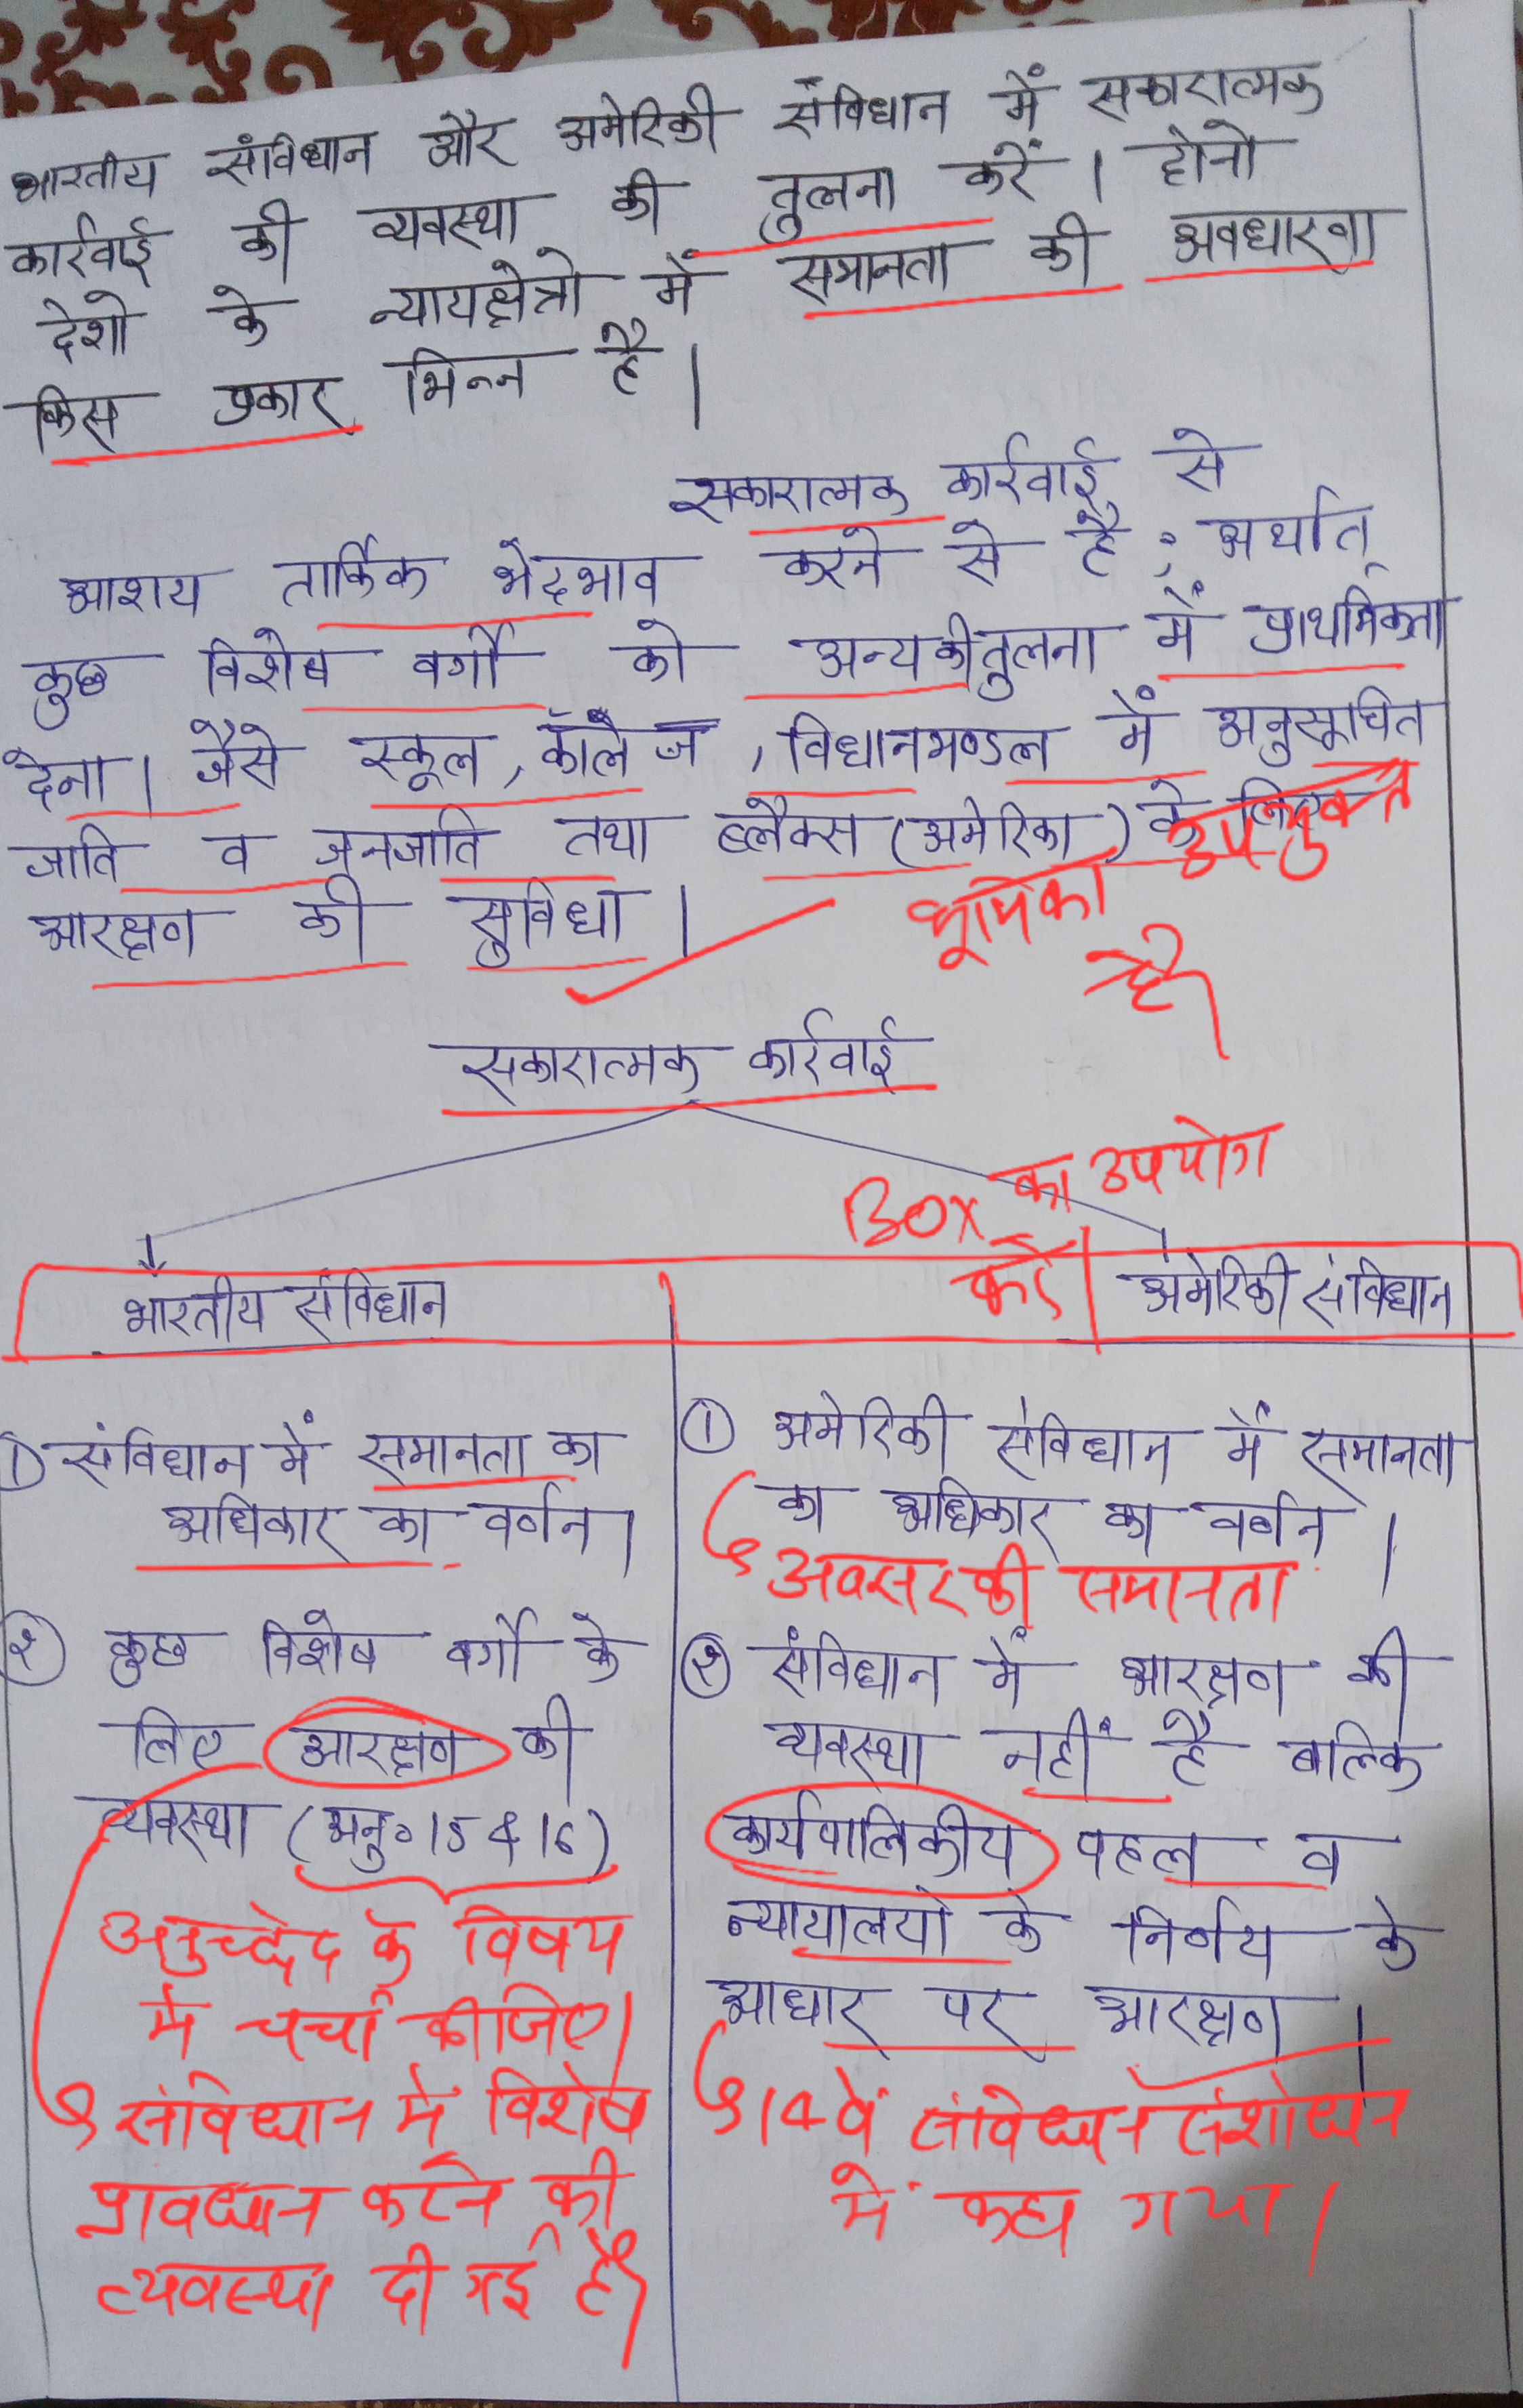 भारतीय संविधान और अमेरिकी संविधान में सकारात्मक
कार्रवाई की व्यवस्था की तुलना करें। दोनो
देशो के न्यायक्षेत्रो में समानता की अवधारणा
किस प्रकार भिन्न है।
सकारात्मक कार्रवाई से
आशय तार्किक भेदभाव करने से है; अर्थात्
कुछ विशेष वर्गो को अन्य की तुलना में प्राथमिकता
देना। जैसे स्कूल, कॉलेज, विधानमण्डल में अनुसूचित
जाति व जनजाति तथा ब्लैक्स (अमेरिका) के लिए
आरक्षण की सुविधा।
भूमिका उपयुक्त
है।
सकारात्मक कार्रवाई
Box का उपयोग
करें।
भारतीय संविधान
अमेरिकी संविधान
① संविधान में समानता का
अधिकार का वर्णन।
② कुछ विशेष वर्गो के
लिए आरक्षण की
व्यवस्था (अनु० 15 & 16)
अनुच्छेद के विषय
में चर्चा कीजिए।
संविधान में विशेष
प्रावधान करने की
व्यवस्था दी गई है।
① अमेरिकी संविधान में समानता
का अधिकार का वर्णन।
अवसर की समानता
② संविधान में आरक्षण की
व्यवस्था नहीं है बल्कि
कार्यपालिकीय पहल व
न्यायालयो के निर्णय के
आधार पर आरक्षण।
14वें संविधान संशोधन
में कहा गया।